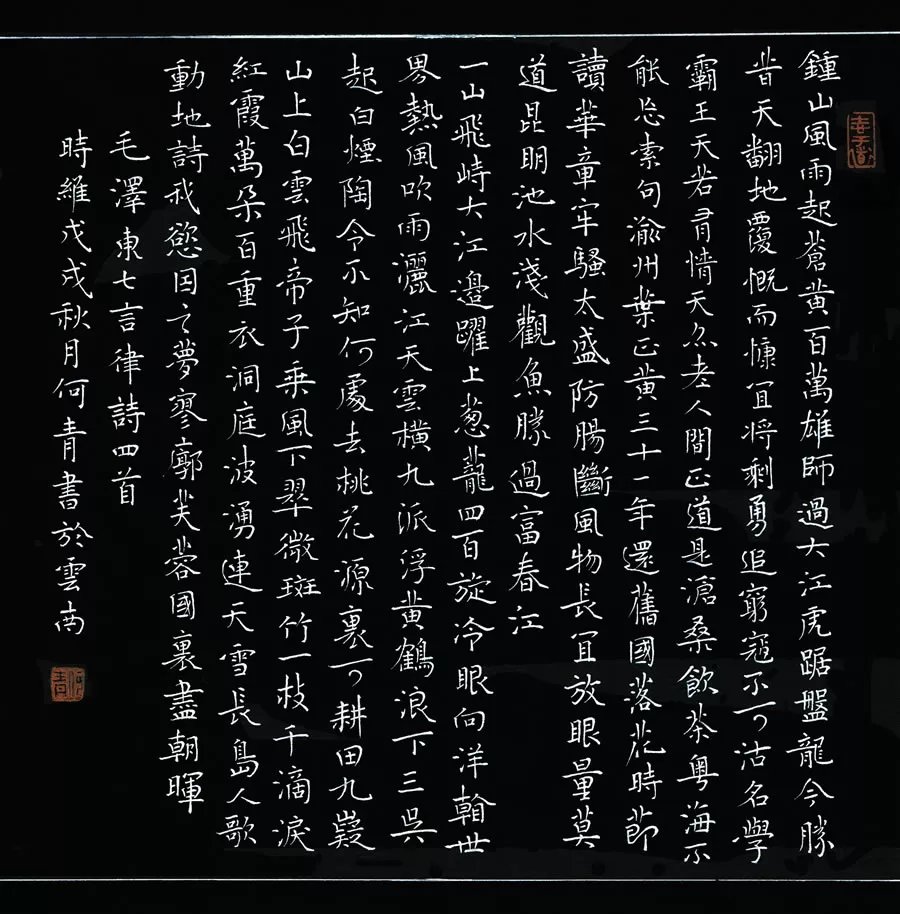 鍾山風雨起蒼黃百萬雄師過大江虎踞盤龍今勝
昔天翻地覆慨而慷宜將剩勇追窮寇不可沽名學
霸王天若有情天亦老人間正道是滄桑飲茶粵海不
能忘索句渝州葉正黃三十一年還舊國落花時節
讀華章牢騷太盛防腸斷風物長宜放眼量莫
道昆明池水淺觀魚勝過富春江
一山飛峙大江邊躍上葱蘢四百旋冷眼向洋看世
界熱風吹雨灑江天雲橫九派浮黃鶴浪下三吳
起白煙陶令不知何處去桃花源裏可耕田九嶷
山上白雲飛帝子乘風下翠微斑竹一枝千滴淚
紅霞萬朵百重衣洞庭波湧連天雪長島人歌
動地詩我慾因之夢寥廓芙蓉國裏盡朝暉
毛澤東七言律詩四首
時維戊戌秋月何青書於雲南
何青